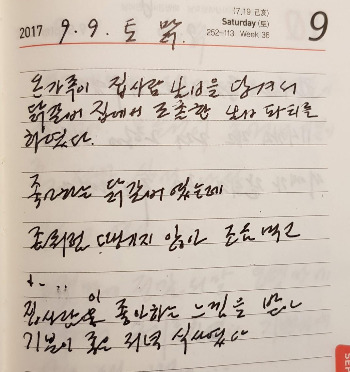 (7.19 己亥)
2017 9. 9. 토 맑. Saturday (토) 9
252-113 Week 36
온가족이 집사람 생일을 당겨서
닭갈비 집에서 조촐한 생일 파티를
하였다.
좋아하는 닭갈비 였는데
땡기지 않아 조금 먹고
집사람이 좋아하는 느낌을 받으니
기분이 좋은 저녁 식사였다
SEP